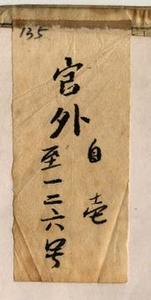 135
宫外自壹
至一二六号